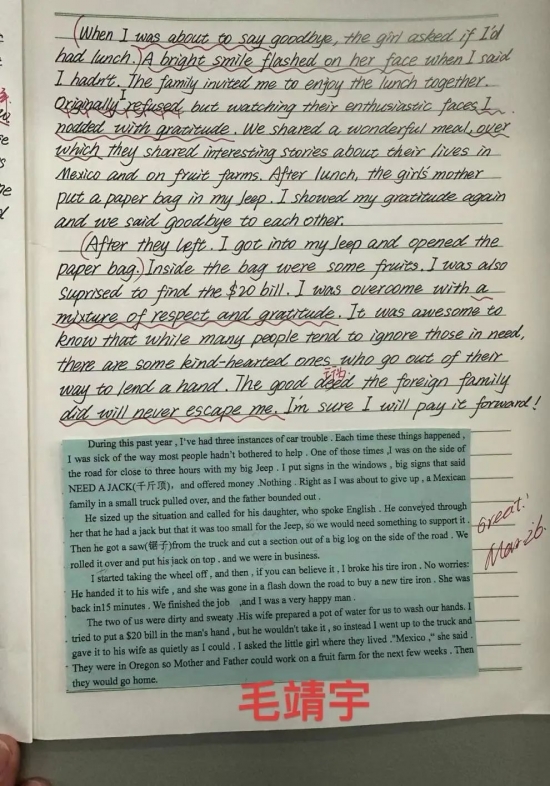 (When I was about to say goodbye, the girl asked if I'd
had lunch.) A bright smile flashed on her face when I said
I hadn't. The family invited me to enjoy the lunch together.
Originally I refused, but watching their enthusiastic faces, I
nodded with gratitude. We shared a wonderful meal, over
which they shared interesting stories about their lives in
Mexico and on fruit farms. After lunch, the girl's mother
put a paper bag in my Jeep. I showed my gratitude again
and we said goodbye to each other.
(After they left. I got into my Jeep and opened the
paper bag.) Inside the bag were some fruits. I was also
suprised to find the $20 bill. I was overcome with a
mixture of respect and gratitude. It was awesome to
know that while many people tend to ignore those in need,
there are some kind-hearted ones who go out of their
way to lend a hand. The good deed the foreign family
did will never escape me. I'm sure I will pay it forward!
During this past year , I've had three instances of car trouble . Each time these things happened ,
I was sick of the way most people hadn't bothered to help . One of those times ,I was on the side of
the road for close to three hours with my big Jeep . I put signs in the windows , big signs that said
NEED A JACK(千斤顶), and offered money .Nothing . Right as I was about to give up , a Mexican
family in a small truck pulled over, and the father bounded out .
He sized up the situation and called for his daughter, who spoke English . He conveyed through
her that he had a jack but that it was too small for the Jeep, so we would need something to support it .
Then he got a saw(锯子)from the truck and cut a section out of a big log on the side of the road . We
rolled it over and put his jack on top . and we were in business.
I started taking the wheel off , and then , if you can believe it , I broke his tire iron . No worries:
He handed it to his wife , and she was gone in a flash down the road to buy a new tire iron . She was
back in15 minutes . We finished the job ,and I was a very happy man .
The two of us were dirty and sweaty .His wife prepared a pot of water for us to wash our hands. I
tried to put a $20 bill in the man's hand , but he wouldn't take it , so instead I went up to the truck and
gave it to his wife as quietly as I could . I asked the little girl where they lived ."Mexico ," she said .
They were in Oregon so Mother and Father could work on a fruit farm for the next few weeks . Then
they would go home.
Great!
Mar 26.
毛靖宇